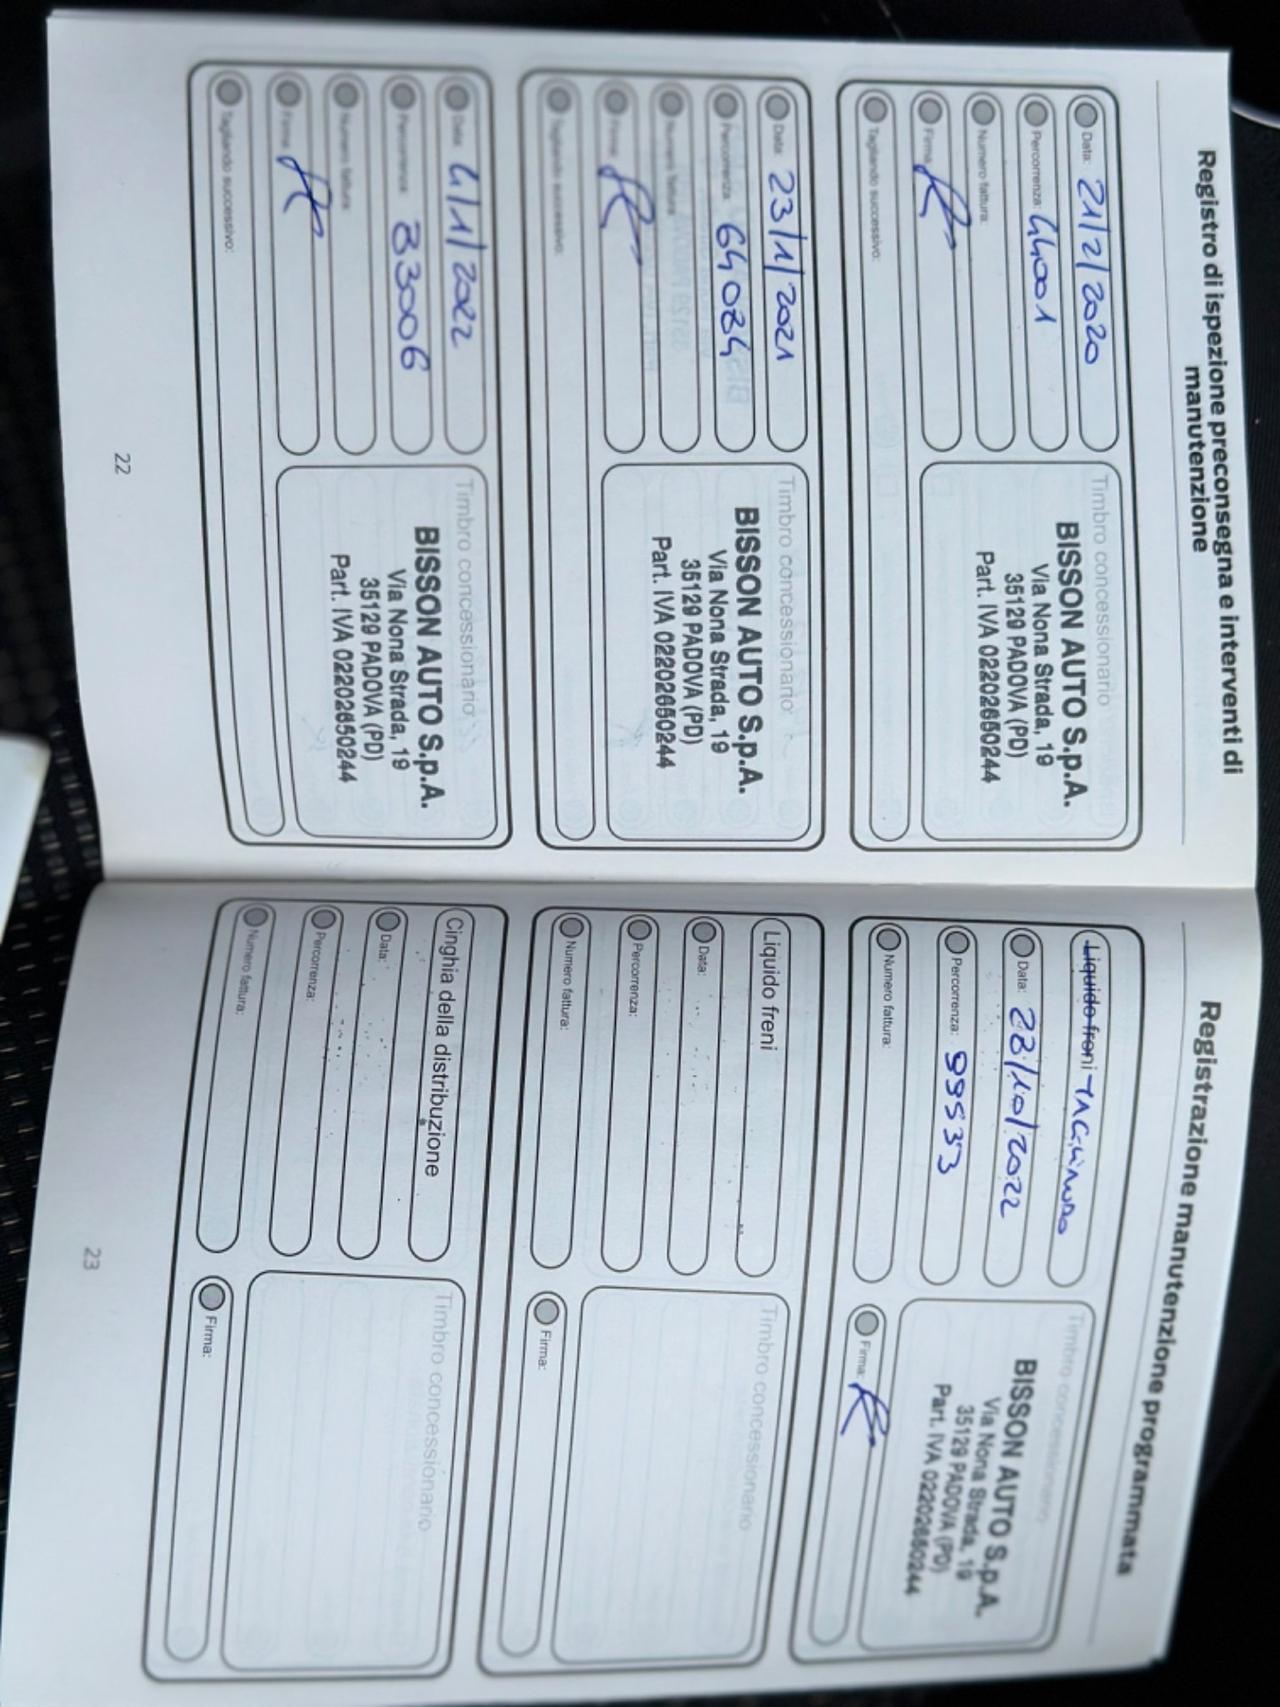 Registro di ispezione preconsegna e interventi di
manutenzione
Data: 21/2/2020
Percorrenza: 44001
Numero fattura:
Firma:
Tagliando successivo:
Timbro concessionario
BISSON AUTO S.p.A.
Via Nona Strada, 19
35129 PADOVA (PD)
Part. IVA 02202650244
Data: 23/1/2021
Percorrenza: 64084
Numero fattura:
Firma:
Tagliando successivo:
Timbro concessionario
BISSON AUTO S.p.A.
Via Nona Strada, 19
35129 PADOVA (PD)
Part. IVA 02202650244
Data: 4/1/2022
Percorrenza: 83006
Numero fattura:
Firma:
Tagliando successivo:
Timbro concessionario
BISSON AUTO S.p.A.
Via Nona Strada, 19
35129 PADOVA (PD)
Part. IVA 02202650244
22
Registrazione manutenzione programmata
Liquido freni - TAGLIANDO
Data: 28/10/2022
Percorrenza: 99533
Numero fattura:
Timbro concessionario
BISSON AUTO S.p.A.
Via Nona Strada, 19
35129 PADOVA (PD)
Part. IVA 02202650244
Firma:
Liquido freni
Data:
Percorrenza:
Numero fattura:
Timbro concessionario
Firma:
Cinghia della distribuzione
Data:
Percorrenza:
Numero fattura:
Timbro concessionario
Firma:
23